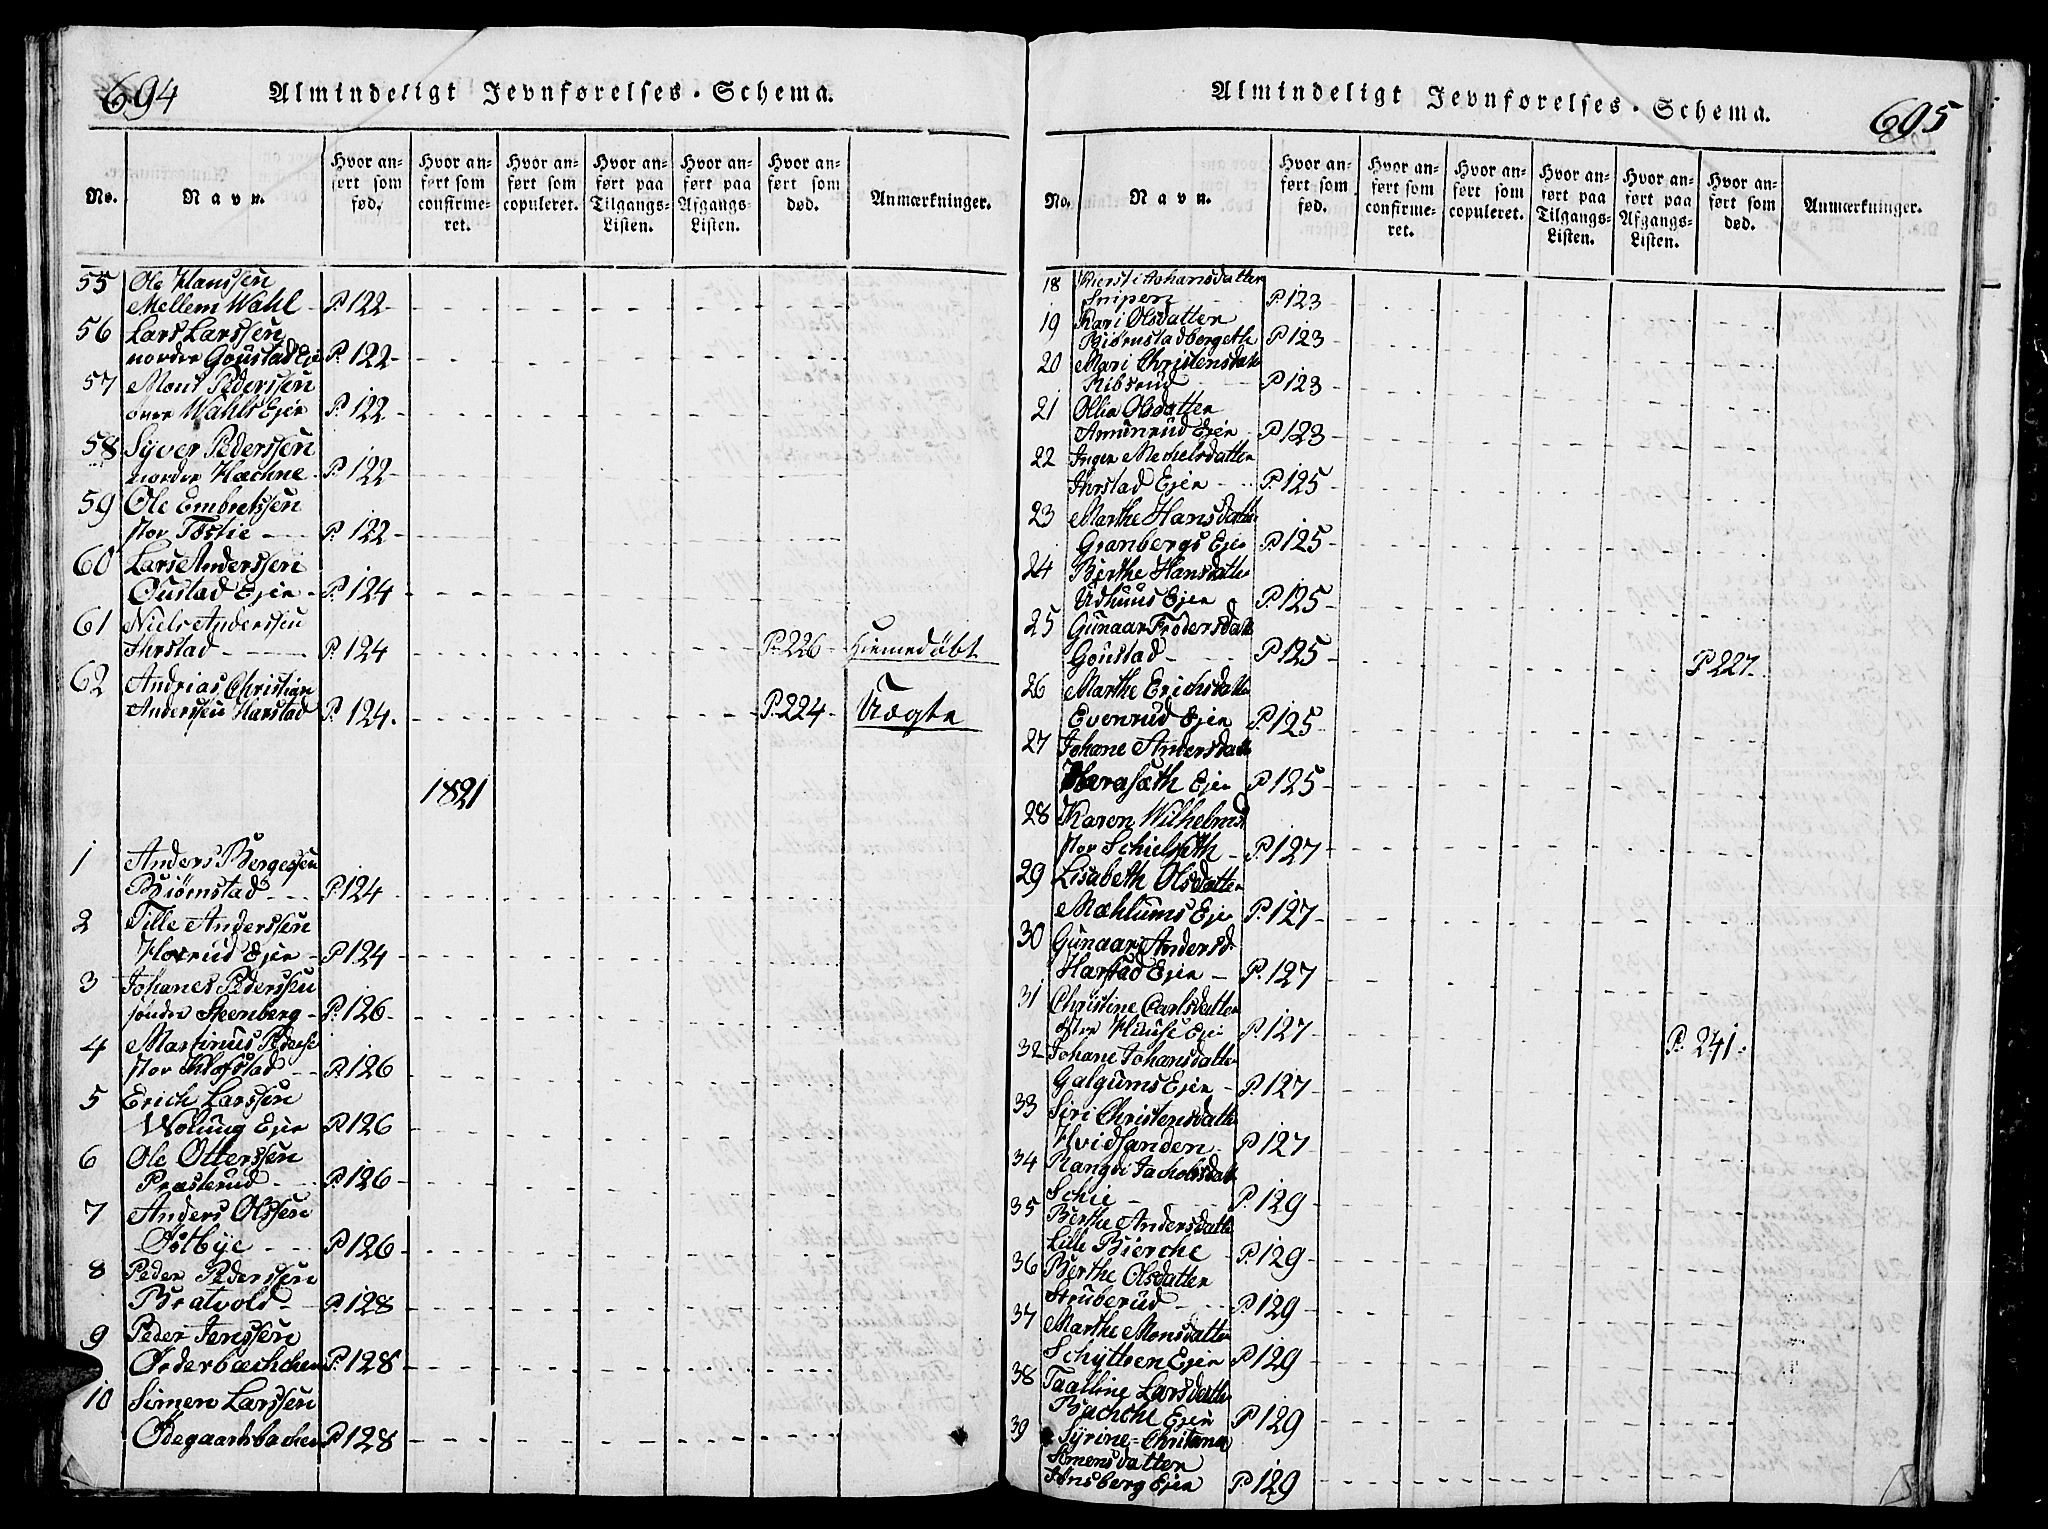 694
Almindeligt Jevnførelses-Schema.
No.
Navn.
Hvor anført som fød.
Hvor anført som confirmeret.
Hvor anført som copuleret.
Hvor anført paa Tilgangs-Listen.
Hvor anført paa Afgangs-Listen.
Hvor anført som død.
Anmærkninger.
55 Ole Hanssen
Mellem Wahl P. 122
56 Lars Larssen
nordre Goustad Eie P. 122
57 Mons Pederssen
øvre Wahls Ejer P. 122
58 Syver Pederssen
nordre Hæchne P. 122
59 Ole Embretssen
stor Tøstie P. 122
60 Lars Anderssen
Oustad Ejer P. 124
61 Niels Anderssen
Ihrstad P. 124 P. 226 Hiemedøbt
62 Andrias Christian
Anderssen Harstad P. 124. P. 224 Uægte
1821
1 Anders Bergessen
Biørnstad P. 124
2 Tille Anderssen
Horrud Ejer P. 124
3 Johanes Pederssen
søndre Steenberg P. 126
4 Martinus Pederse
stor Klofstad P. 126
5 Erich Larssen
Wolung Ejer P. 126
6 Ole Otterssen
Præsterud P. 126
7 Anders Olssen
Østbye P. 126
8 Peder Pederssen
Bratvold P. 128
9 Peder Jenssen
Orderbæchchen P. 128
10 Simen Larssen
Ødegaardsbachen P. 128
Almindeligt Jevnførelses-Schema.
695
No.
Navn.
Hvor anført som fød.
Hvor anført som confirmeret.
Hvor anført som copuleret.
Hvor anført paa Tilgangs-Listen.
Hvor anført paa Afgangs-Listen.
Hvor anført som død.
Anmærkninger.
18 Kiersti Johansdatter
Snipen P. 123
19 Kari Olsdatter
Biørnstadbergeth P. 123
20 Mari Christensdatt
Ribsrud P. 123
21 Ollia Olsdatter
Amunrud Ejer P. 123
22 Inger Mechelsdatter
Ihrstad Ejer P. 125
23 Marthe Hansdatte
Granbergs Eje P. 125
24 Berthe Hansdatte
Udhuus Ejer P. 125
25 Gunaar Frodersdatt
Goustad P. 125 P. 227.
26 Marthe Erichsdatte
Evenrud Ejer P. 125
27 Johane Andersdatt
Harasæth Ejer P. 125
28 Karen Wilhelmsd
stor Schielseth P. 127
29 Lisabeth Olsdatter
Mæhlums Eje P. 127
30 Gunaar Andersd
Harstad Ejer P. 127
31 Christine Carlsdatter
østre Hause Eje P. 127 P. 241.
32 Johane Johansdatte
Galgums Ejer P. 127
33 Siri Christensdatter
Hvidsanden P. 127
34 Rangdi Jachobsdatt
Schie P. 129
35 Berthe Andersdatte
Lille Bierche P. 129
36 Berthe Olsdatter
Struberud P. 129
37 Marthe Monsdatter
Schytten Ejer P. 129
38 Taalline Larsdatte
Bachche Ejer P. 129
39 Syrine Christiana
Simensdatter
Tønsberg Ejer P. 129